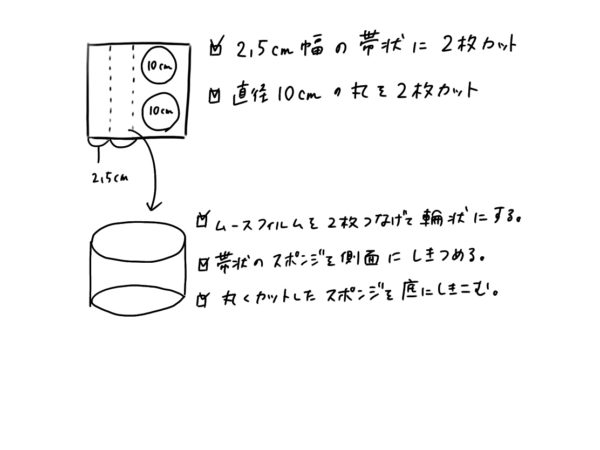 2,5cm幅の帯状に2枚カット
10cm
直径10cmの丸を2枚カット
10cm
2,5cm
ムースフィルムを2枚つなげて輪状にする。
帯状のスポンジを側面にしきつめる。
丸くカットしたスポンジを底にしきこむ。